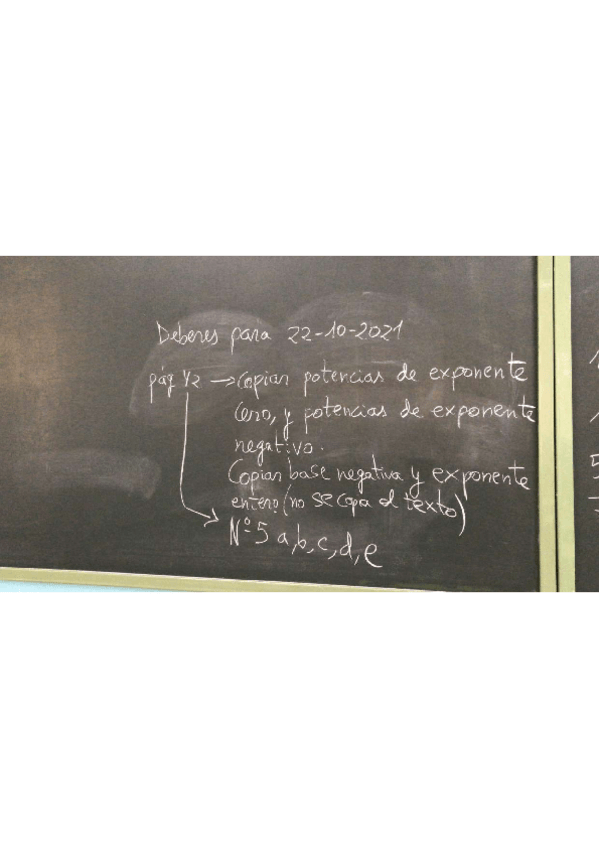 Deberes para 22-10-2021
pág 42 → Copiar potencias de exponente
cero, y potencias de exponente
negativo.
Copiar base negativa y exponente
entero (no se copia el texto)
Nº 5 a,b,c,d,e